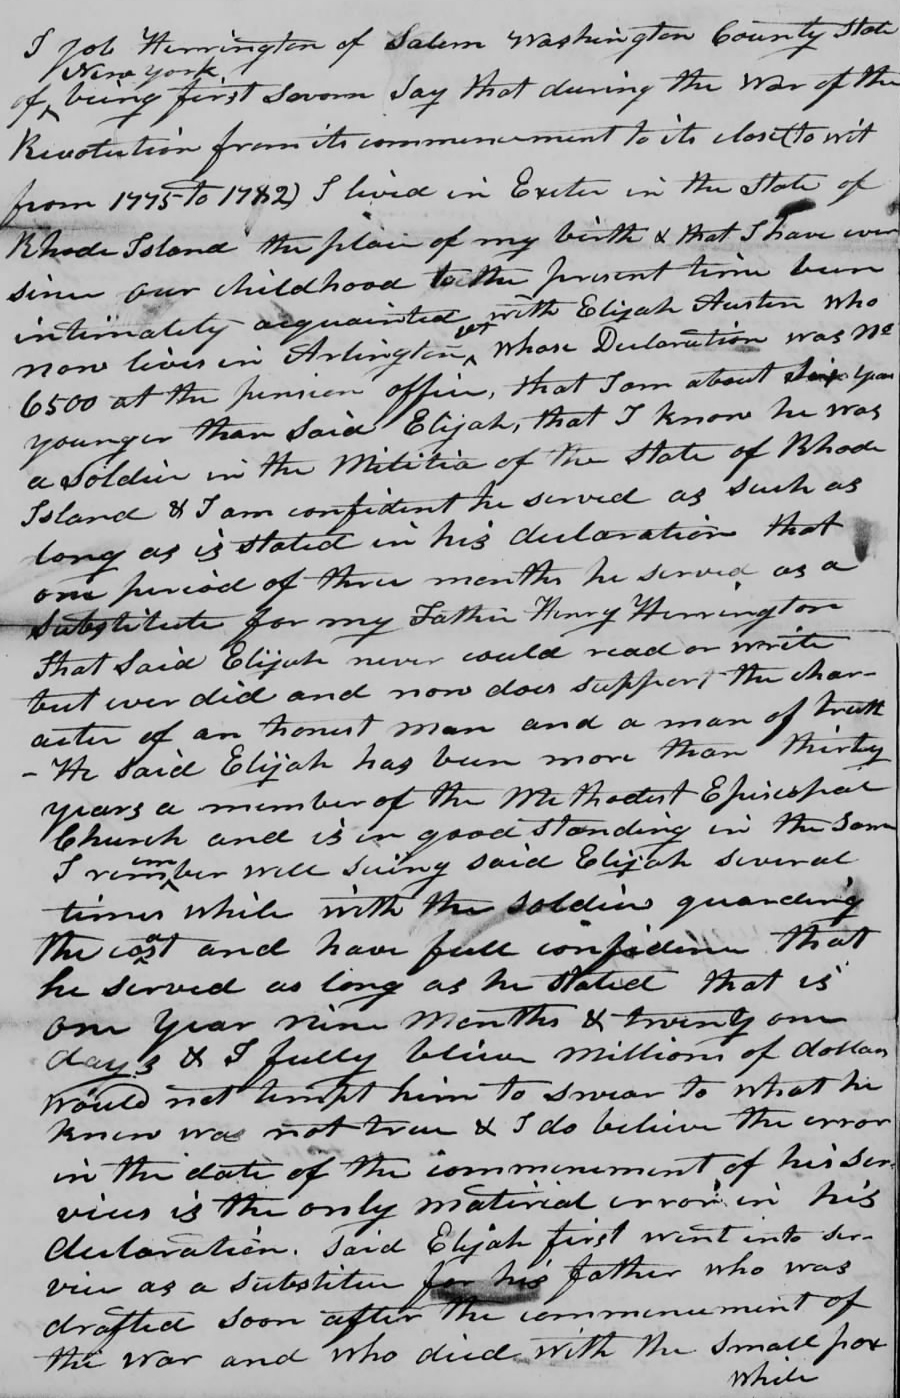 I Job Herrington of Salem Washington County State
New York
of ^ being first Sworn Say that during the War of the
Revolution from its commencement to its close (to wit
from 1775 to 1782) I lived in Exeter in the State of
Rhode Island the place of my birth & that I have ever
since our childhood to the present time been
intimately acquainted with Elijah Austin who
now lives in Arlington ^ Vt whose Declaration was No
6500 at the pension office, that I am about Six years
younger than said Elijah, that I know he was
a soldier in the Militia of the State of Rhode
Island & I am confident he served as such as
long as is stated in his declaration that
one period of three months he served as a
substitute for my Father Henry Herrington
that said Elijah never could read or write
but ever did and now does support the char-
acter of an honest man and a man of truth
- He said Elijah has been more than thirty
years a member of the Methodist Episcopal
Church and is in good standing in the same
I rem^ember well seing said Elijah several
times while with the soldiers guarding
the co^ast and have full confidence that
he served as long as he stated that is
one year nine months & twenty one
days & I fully believe millions of dollars
would not tempt him to swear to what he
knew was not true & I do believe the error
in the date of the commencement of his ser-
vices is the only material error in his
declaration. Said Elijah first went into ser-
vice as a substitue for his father who was
drafted soon after the commencement of
the war and who died with the small pox
while